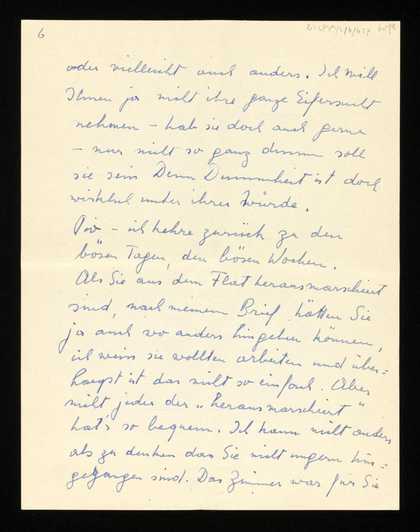 6
oder vielleicht auch anders. Ich will
Ihnen ja nicht ihre ganze Eifersucht
nehmen – hab sie doch auch gerne
– nur nicht so ganz dumm soll
sie sein Denn Dummheit ist doch
wirklich unter ihrer Würde.
– ich kehre zurück zu den
bösen Tagen, den bösen Wochen.
Als Sie aus dem Flat herausmarschiert
sind, nach meinem Brief hätten Sie
ja auch wo anders hingehen können,
ich weiss sie wollten arbeiten und über=
haupt ist das nicht so einfach. Aber
nicht jeder der „herausmarschiert"
hat's so bequem. Ich kann nicht anders
als zu denken das Sie nicht ungern hin=
gegangen sind. Das Zimmer war für Sie